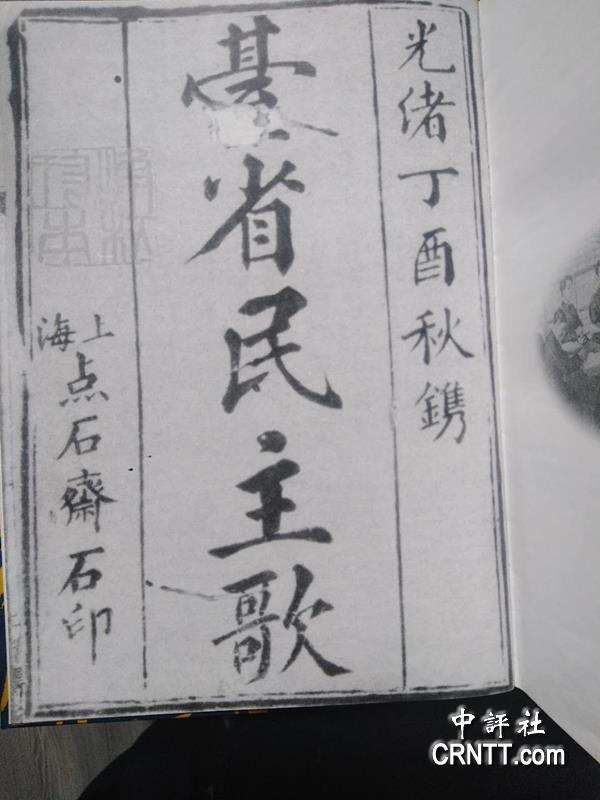 光緒丁酉秋鐫
臺省民主歌
上海
点石齋石印
中評社
CRNTT.com